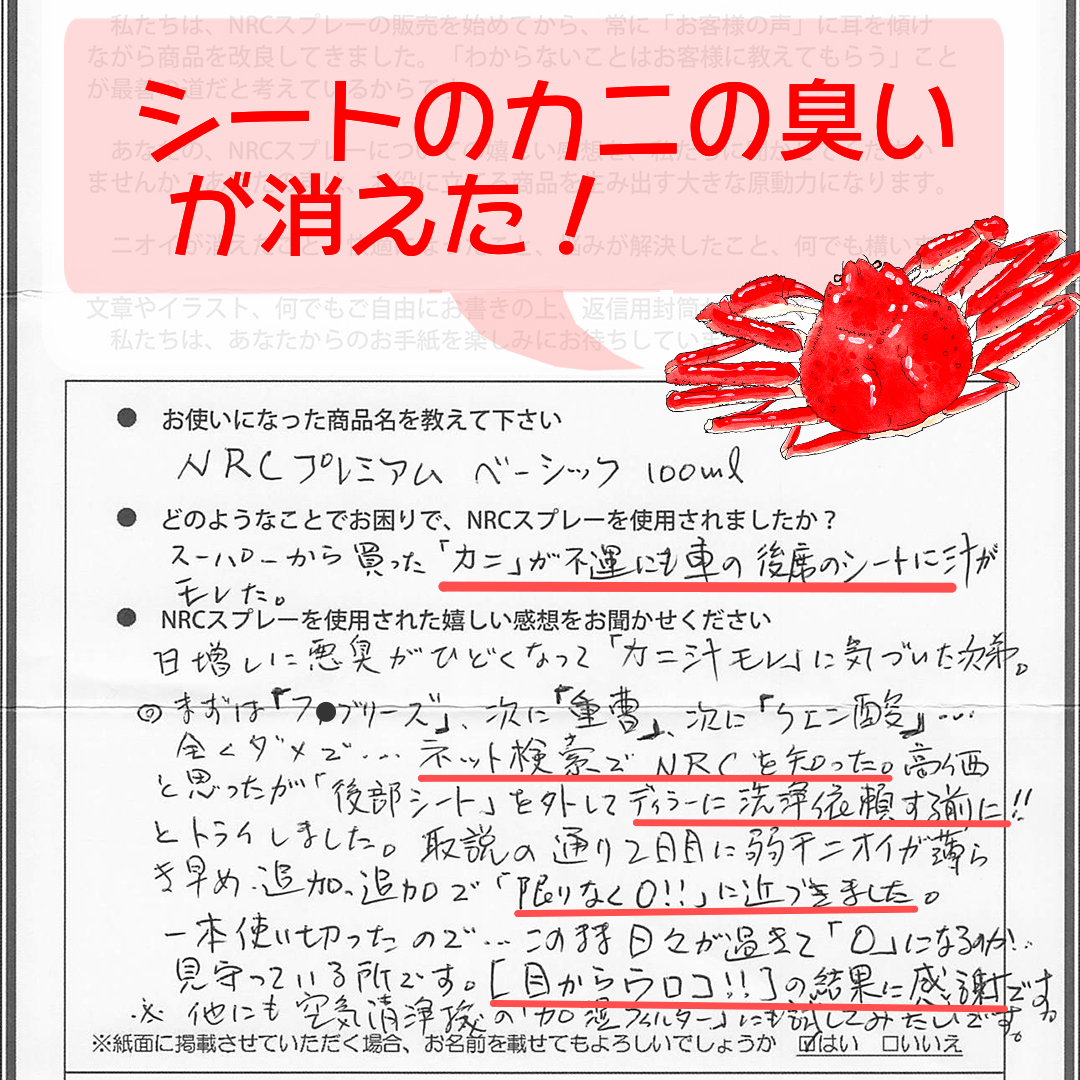 私たちは、NRCスプレーの販売を始めてから、常に「お客様の声」に耳を傾け
ながら商品を改良してきました。「わからないことはお客様に教えてもらう」こと
が最善の道だと考えているからで
シートのカニの臭い
が消えた！
ませんか
商品を生み出す大きな原動力になります。
ニオイが消えたこと
悩みが解決したこと、何でも構い
文章やイラスト、何でもご自由にお書きの上、返信用封筒
私たちは、あなたからのお手紙を楽しみにお待ちしてい
● お使いになった商品名を教えて下さい
NRCプレミアム ベーシック 100ml
● どのようなことでお困りで、NRCスプレーを使用されましたか？
スーパーから買った「カニ」が不運にも車の後席のシートに汁が
モレた。
● NRCスプレーを使用された嬉しい感想をお聞かせください
日増しに悪臭がひどくなって「カニ汁モレ」に気づいた次第。
まずは「フ●ブリーズ」、次に「重曹」、次に「クエン酸」…
全くダメで… ネット検索でNRCを知った。高価
と思ったが「後部シート」を外してディラーに洗浄依頼する前に!!
とトライしました。取説の通り2日目に弱干ニオイが薄ら
き早め、追加、追加で「限りなく0!!」に近づきました。
一本使い切ったので… この時日々が過ぎて「0」になるのか…
見守っている所です。[目からウロコ!!]の結果に感謝です。
※ 他にも空気清浄機の「加湿フィルター」にも試してみたいです。
※紙面に掲載させていただく場合、お名前を載せてもよろしいでしょうか ☑はい □いいえ